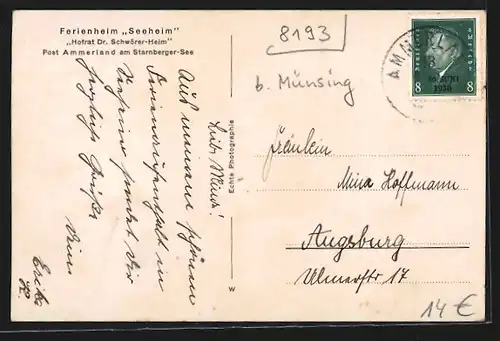 Ferienheim „Seeheim"
„Hofrat Dr. Schwörer-Heim"
Post Ammerland am Starnberger-See
8193
b. Münsing
AMMERL
30. JUNI
1930
8 8
Liebe Mina!
Aus meinem schönen
Ferienaufenthalt in
Seeheim sendet Dir
herzliche Grüße
Deine
Erika
Echte Photographie
W
Fräulein
Mina Hoffmann
Augsburg
Ulmerstr. 17
14 €